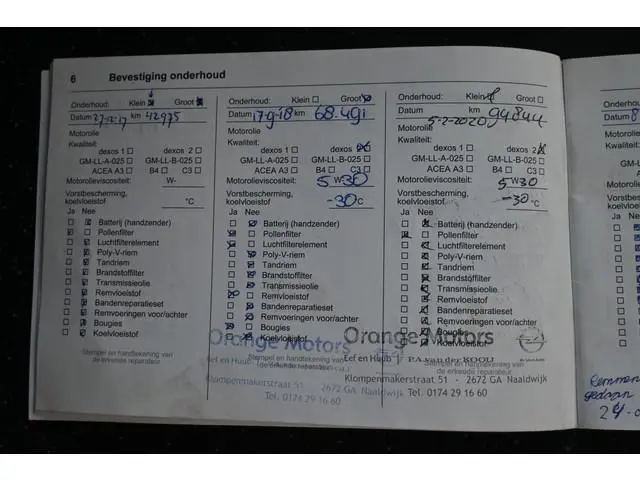 6 Bevestiging onderhoud
Onderhoud: Klein Groot
Datum 27-12-17 km 42975
Motorolie
Kwaliteit:
dexos 1 dexos 2
GM-LL-A-025 GM-LL-B-025
ACEA A3 B4 C3
Motorolieviscositeit: W-
Vorstbescherming,
koelvloeistof °C
Ja Nee
Batterij (handzender)
Pollenfilter
Luchtfilterelement
Poly-V-riem
Tandriem
Brandstoffilter
Transmissieolie
Remvloeistof
Bandenreparatieset
Remvoeringen voor/achter
Bougies
Koelvloeistof
Stempel en handtekening van
de erkende reparateur
Onderhoud: Klein Groot
Datum 17-9-18 km 68.491
Motorolie
Kwaliteit:
dexos 1 dexos 2
GM-LL-A-025 GM-LL-B-025
ACEA A3 B4 C3
Motorolieviscositeit: 5 W 30
Vorstbescherming,
koelvloeistof -30 °C
Ja Nee
Batterij (handzender)
Pollenfilter
Luchtfilterelement
Poly-V-riem
Tandriem
Brandstoffilter
Transmissieolie
Remvloeistof
Bandenreparatieset
Remvoeringen voor/achter
Bougies
Koelvloeistof
Orange Motors
Stempel en handtekening van
de erkende reparateur
Klompenmakerstraat 51 - 2672 GA Naaldwijk
Tel. 0174 29 16 60
Onderhoud: Klein Groot
Datum 5-2-2020 km 94844
Motorolie
Kwaliteit:
dexos 1 dexos 2
GM-LL-A-025 GM-LL-B-025
ACEA A3 B4 C3
Motorolieviscositeit: 5 W 30
Vorstbescherming,
koelvloeistof -30 °C
Ja Nee
Batterij (handzender)
Pollenfilter
Luchtfilterelement
Poly-V-riem
Tandriem
Brandstoffilter
Transmissieolie
Remvloeistof
Bandenreparatieset
Remvoeringen voor/achter
Bougies
Koelvloeistof
Orange Motors
Stempel en handtekening van
de erkende reparateur
Klompenmakerstraat 51 - 2672 GA Naaldwijk
Tel. 0174 29 16 60
gedaan